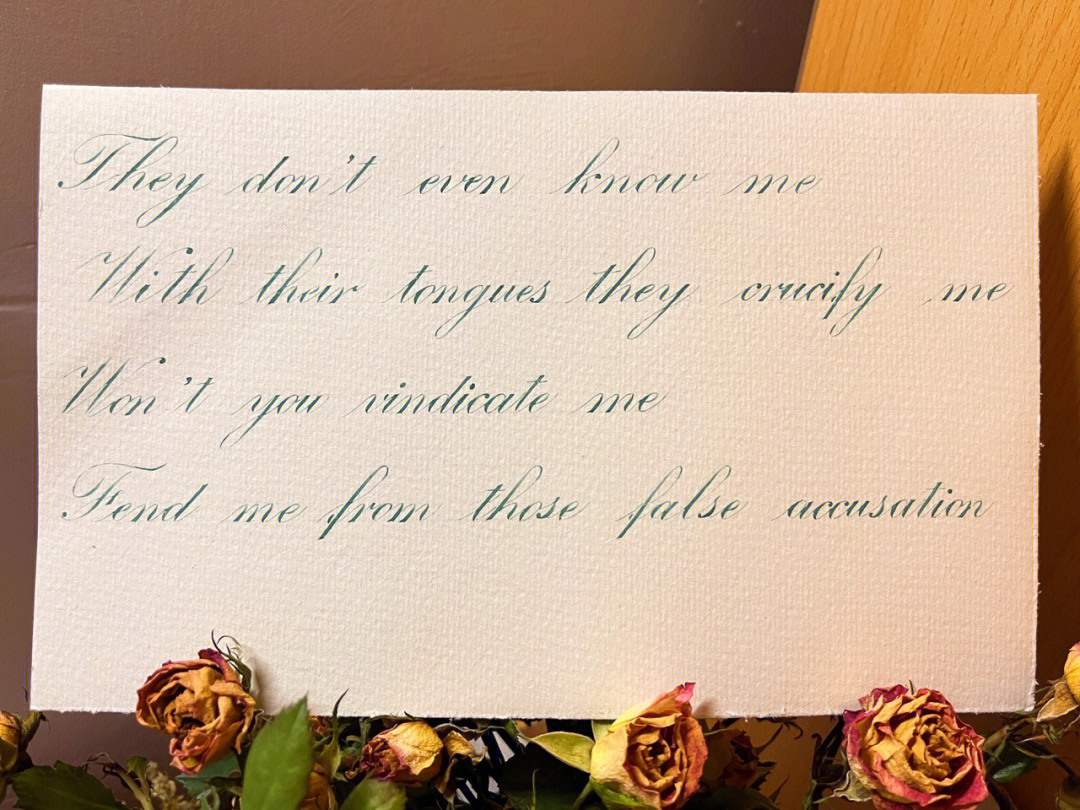 They don't even know me
With their tongues they crucify me
Won't you vindicate me
Fend me from those false accusation